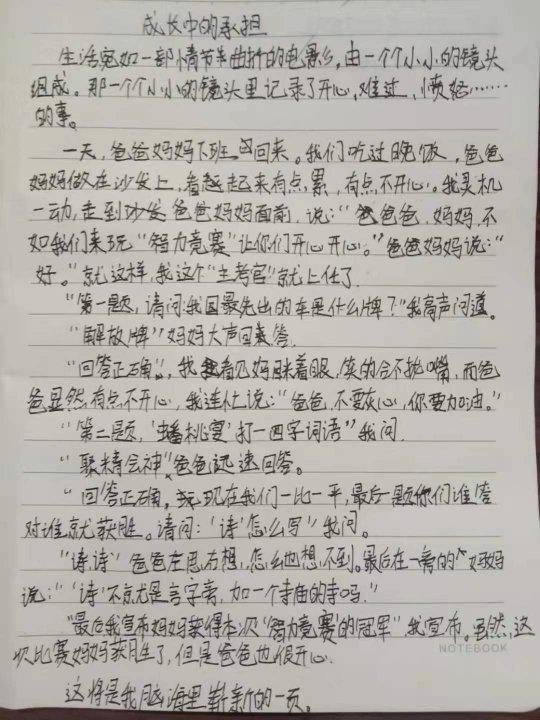 成长中的承担
生活宛如一部情节曲折的电影，由一个个小小的镜头
组成。那一个个小小的镜头里记录了开心，难过，愤怒……
的事。
一天，爸爸妈妈下班回来。我们吃过晚饭，爸爸
妈妈做在沙发上，看起来有点累，有点不开心。我灵机
一动，走到沙发爸爸妈妈面前，说：“爸爸，妈妈，不
如我们来玩“智力竞赛”让你们开心开心。”爸爸妈妈说：“
好。”就这样，我这个“主考官”就上任了.
“第一题，请问：我国最先出的车是什么牌？”我高声问道。
“解放牌”妈妈大声回答.
“回答正确”，我看见妈眯着眼，笑的合不拢嘴，而爸
爸显然有点不开心，我连忙说：“爸爸，不要灰心，你要加油。”
“第二题，‘蟠桃宴’打一四字词语”我问.
“聚精会神”爸爸迅速回答。
“回答正确，现在我们一比一平，最后一题你们谁答
对谁就获胜。请问：‘诗’怎么写”我问。
“诗，诗”爸爸左思右想，怎么也想不到。最后在一旁的妈妈
说：“‘诗’不就是言字旁，加一个寺庙的寺吗.”
“最后我宣布妈妈获得本次‘智力竞赛’的冠军”我宣布。虽然，这
次比赛妈妈获胜了，但是爸爸也很开心.
NOTEBOOK
这将是我脑海里崭新的一页。